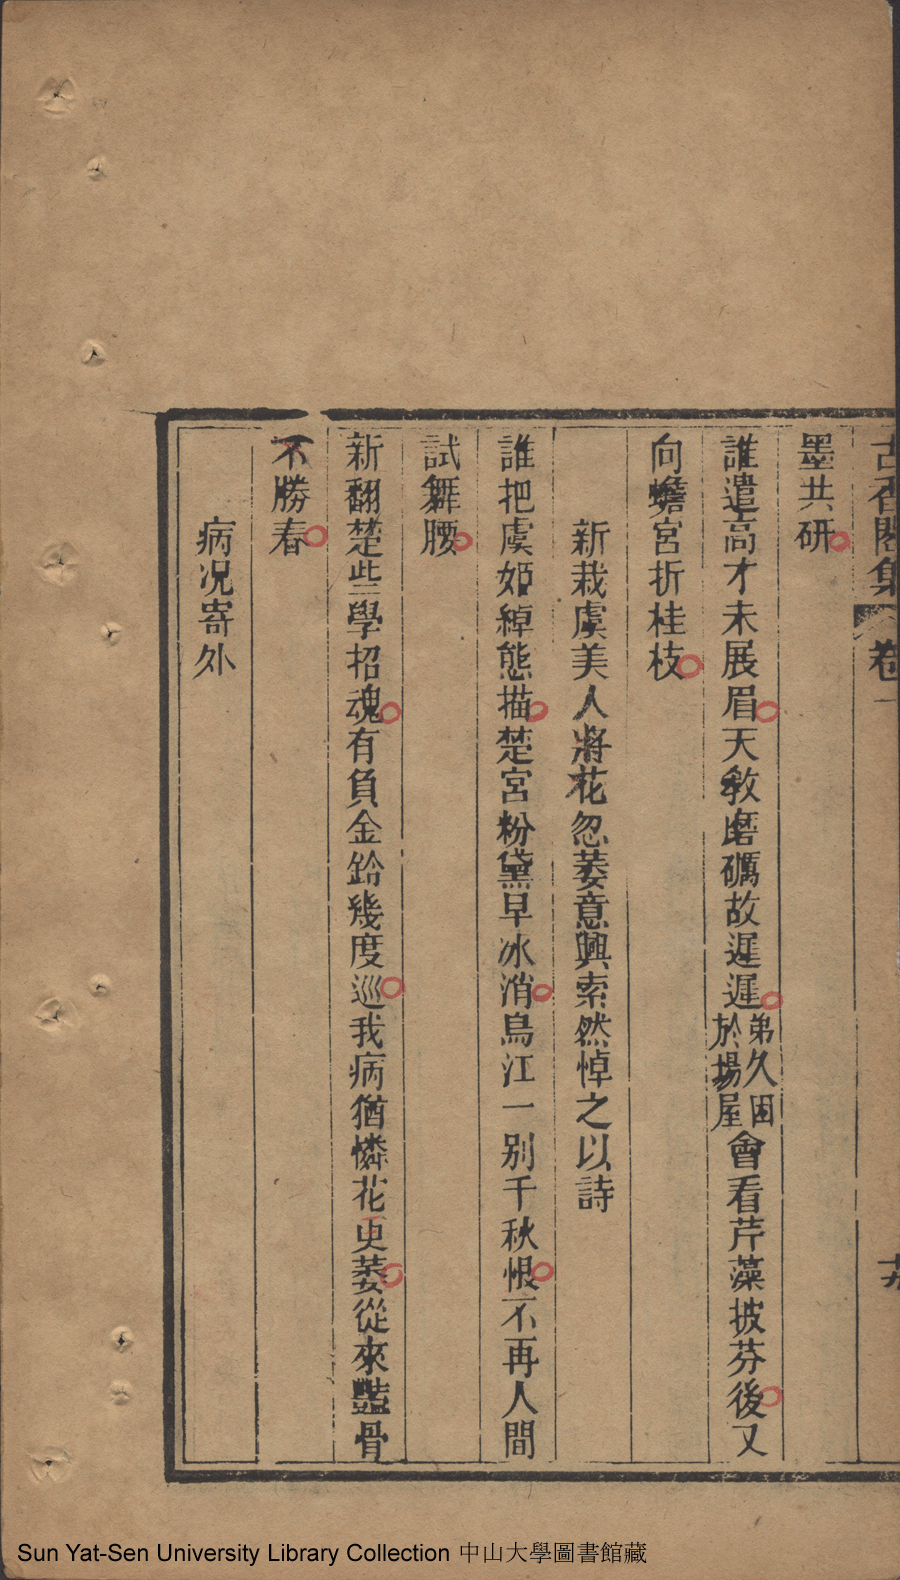 古香閣集 卷一 十九
墨共研
誰遣高才未展眉天教磨礪故遲遲弟久困於場屋會看芹藻披芬後又
向蟾宮折桂枝
新栽虞美人將花忽萎意興索然悼之以詩
誰把虞姬綽態描楚宮粉黛早冰消烏江一别千秋恨不再人間
試舞腰
新翻楚些學招魂有負金鈴幾度巡我病猶憐花更萎從來豔骨
不勝春
病况寄外
Sun Yat-Sen University Library Collection 中山大學圖書館藏